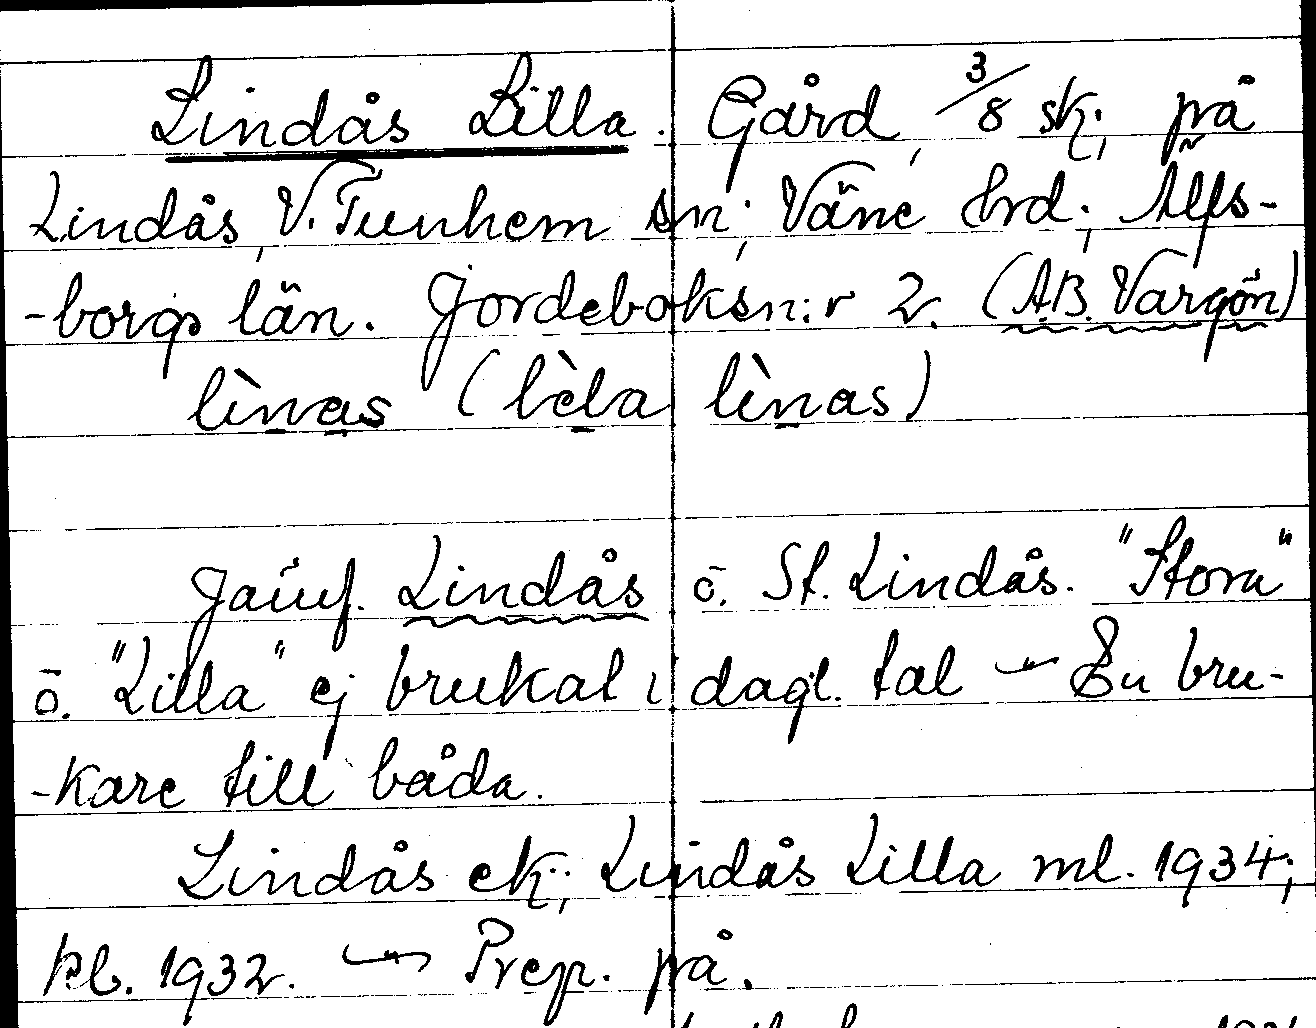 Lindås Lilla. Gård, 3/8 sk., på
Lindås, V. Tunhem sn, Väne hrd., Älfs-
-borgs län. Jordeboksn:r 2. (A.B. Vargön)
lìnas (lèla lìnas)
Jämf. Lindås o. St. Lindås. "Stora"
o. "Lilla" ej brukat i dagl. tal — En bru-
-kare till båda.
Lindås ek., Lindås Lilla ml. 1934;
kb. 1932. — Prep. på.